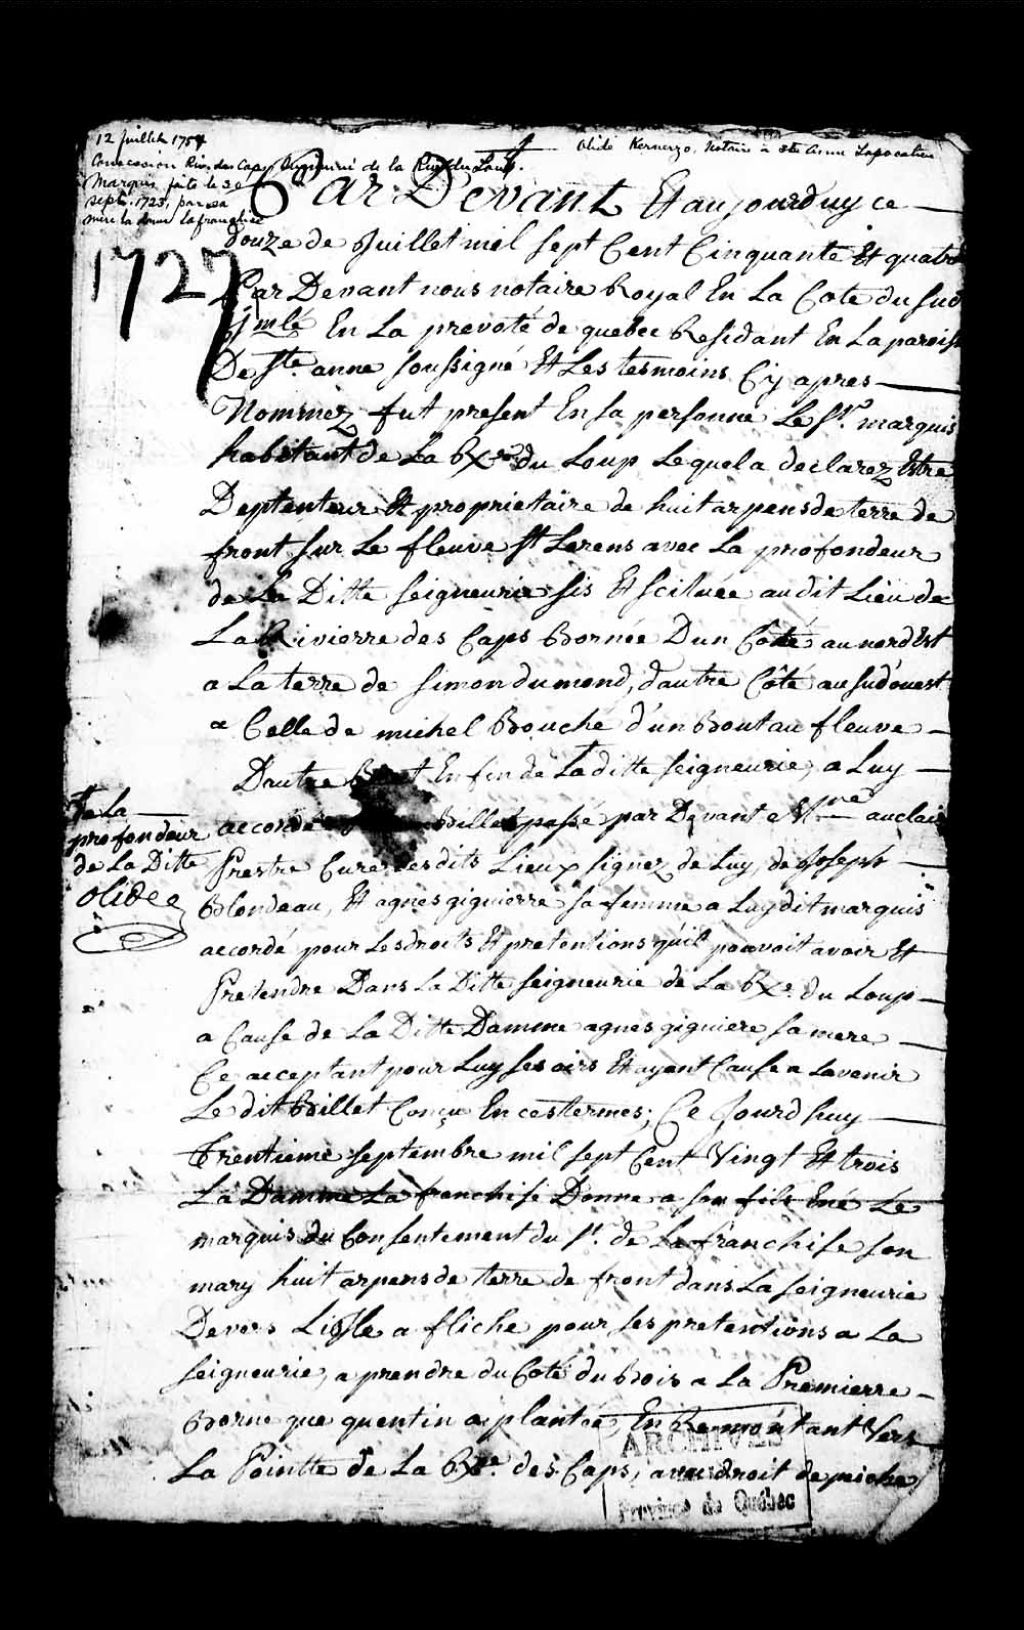 12 Juillet 1754
Concession Riv. des Caps Seigneurie de la Riv. du Loup.
Marquis, faite le 30
sept. 1723, par sa
mère la dame lafranchise
Olidé Kernerzo, Notaire à Ste Anne Lapocatière
1727
Par Devant Et aujourduy ce
douze de Juillet mil sept Cent Cinquante Et quatre
Par Devant nous notaire Royal En La Cote du Sud
jmlé En La prevoté de quebec Residant En La paroisse
De Ste. anne soussigné Et Les tesmoins Cy apres
Nommez fut present En sa personne Le Sr. marquis
habitant de La Rxe du Loup Lequel a declarez Estre
Deptenteur Et proprietaire de huit arpens de terre de
front sur Le fleuve St Lorens avec La profondeur
de La Ditte seigneurie sis Et scituée au dit Lieu de
La Rivierre des Caps Bornée D'un Côté au nordEst
a La terre de simon dumond, d'autre Côté au sudouest
a Celle de michel Bouché d'un Bout au fleuve
D'autre Bout En fin de La ditte seigneurie, a Luy
accordé Billet passé par Devant Mre auclair
Prestre Curé des dits Lieux signez de Luy, de Joseph
Blondeau, Et agnes giguierre sa femme a Luy dit marquis
accordé pour Les droits Et pretentions qu'il pouvoit avoir Et
Pretendre Dans La Ditte seigneurie de La Rxe. du Loup
a Cause de La Ditte Damme agnes giguiere sa mere
Ce acceptant pour Luy ses oirs Et ayant Cause a Lavenir
Le dit Billet Conçu En ces termes; Ce Jourd huy
Trentieme septembre mil sept Cent Vingt Et trois
La Damme La franchise Donne a son fils Ené Le
marquis du Consentement du Sr. de La franchise son
mary huit arpens de terre de front dans La seigneurie
De vers Lisle a fliche pour ses pretentions a La
seigneurie, a prendre du Coté du Bois a La Premierre
Borne que quentin a plantée, En Remontant Vers
La Pointte de La Rxe. des Caps, avec droit de peiche
de La
profondeur
de La Ditte
Olidee
ARCHIVES
Province de Québec